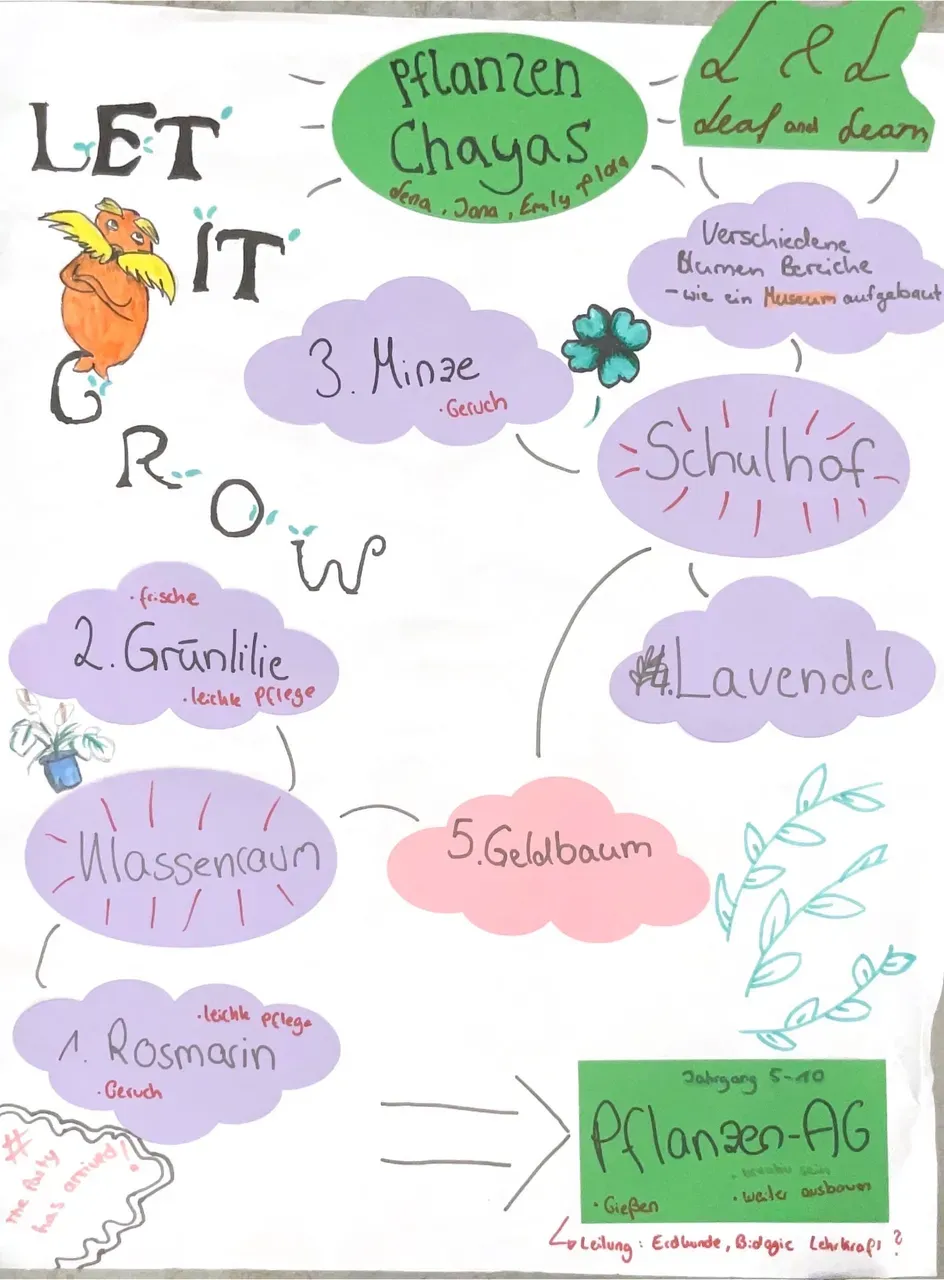 Pflanzen
Chayas
Lena, Jana, Emily, Flora
L & L
Leaf and Learn
LET
IT
GROW
Verschiedene
Blumen Bereiche
- wie ein Museum aufgebaut
3. Minze
· Geruch
Schulhof
· frische
2. Grünlilie
· leichte Pflege
4. Lavendel
Klassenraum
5. Geldbaum
· leichte Pflege
1. Rosmarin
· Geruch
#
the Party
has arrived!
Jahrgang 5-10
Pflanzen-AG
· kreativ sein
· Gießen
· weiter ausbauen
Leitung: Erdkunde, Biologie Lehrkraft?